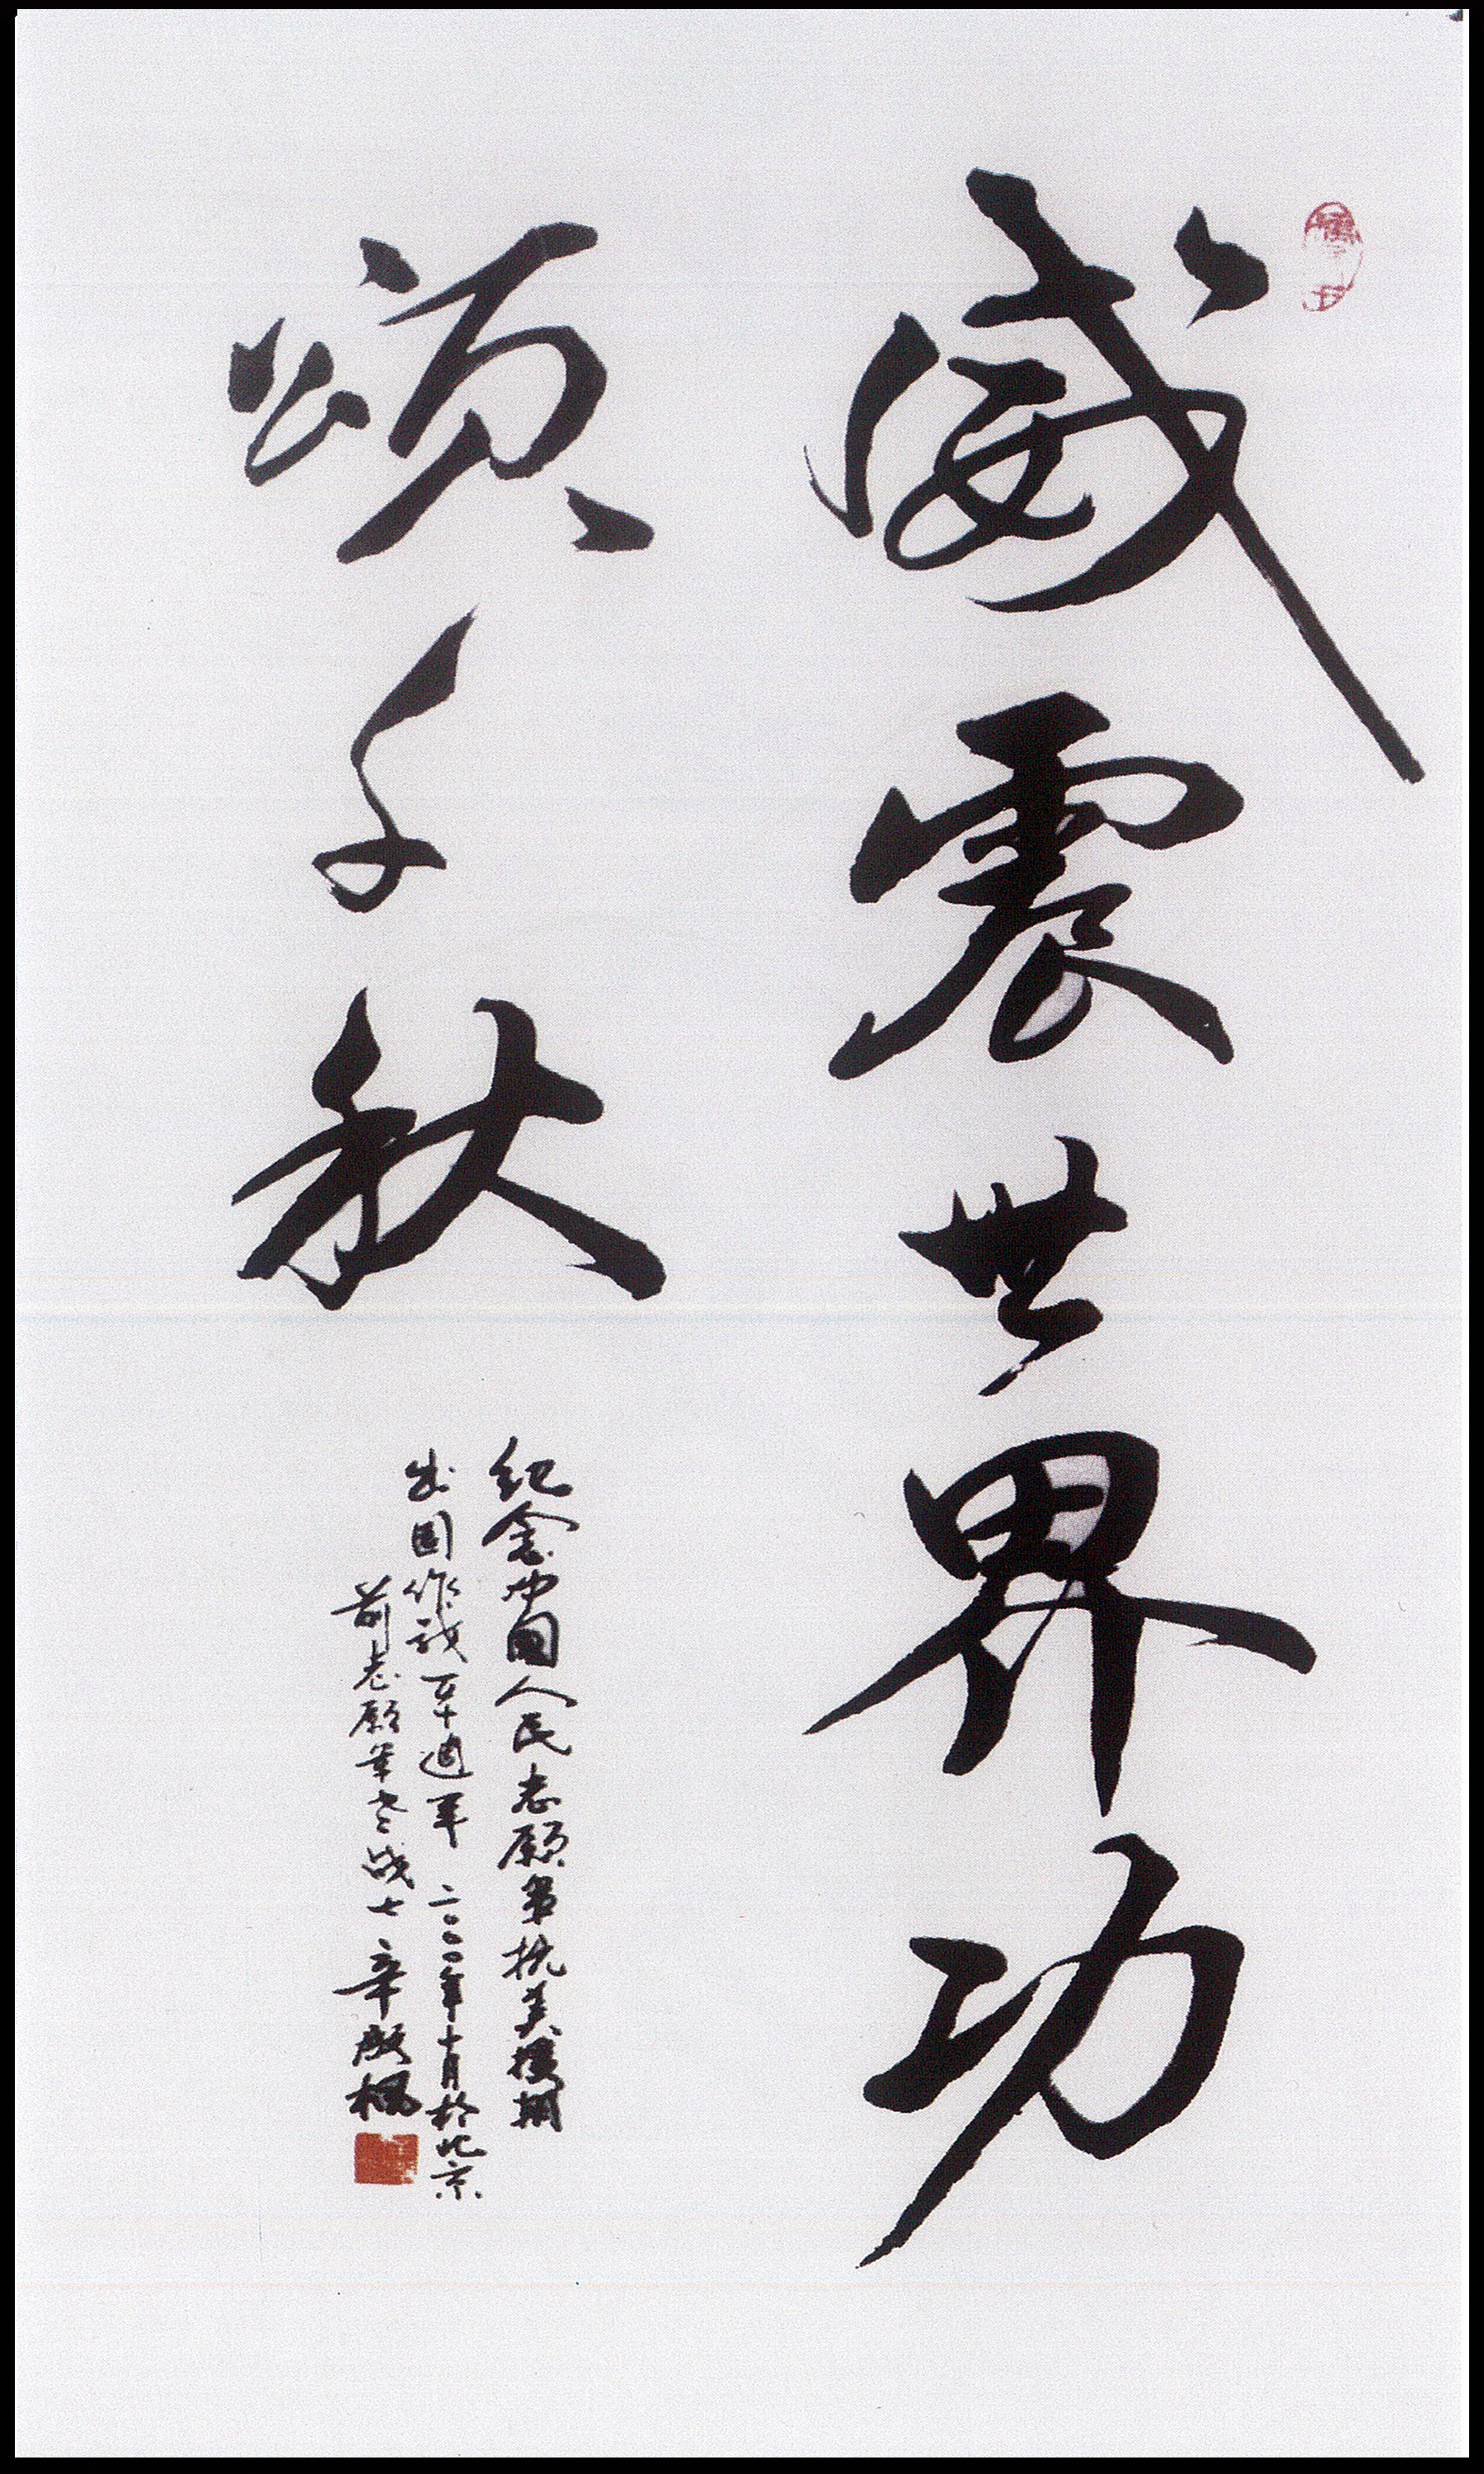 威震世界功
颂千秋
纪念中国人民志愿军抗美援朝
出国作战五十週年 二〇〇〇年十月於北京
前志愿军老战士辛殿枫